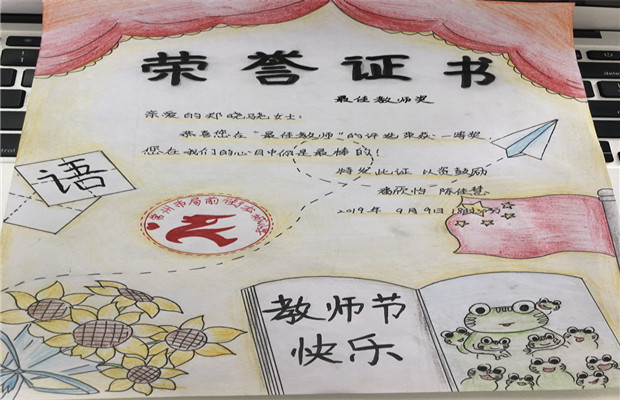 荣誉证书
最佳教师奖
亲爱的郑晓骁女士:
恭喜您在“最佳教师”的评选荣获一等奖
您在我们的心目中你是最棒的!
特发此证 以资鼓励
陈佳慧
2019年 9月9日
语
教师节
快乐